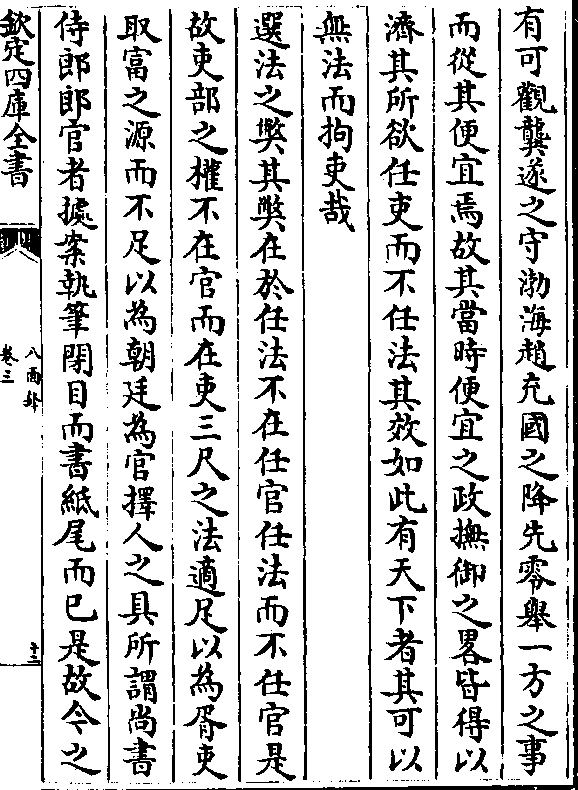 有可觀龔遂之守渤海趙充國之降先零舉一方之事
而從其便宜焉故其當時便宜之政撫御之畧皆得以
濟其所欲任吏而不任法其效如此有天下者其可以
無法而拘吏哉
選法之弊其弊在於任法不在任官任法而不任官是
故吏部之權不在官而在吏三尺之法適足以為胥吏
取富之源而不足以為朝廷為官擇人之具所謂尚書
侍郎郎官者據案執筆閉目而書紙尾而已是故今之
欽定四庫全書
八面鋒
卷三
十三